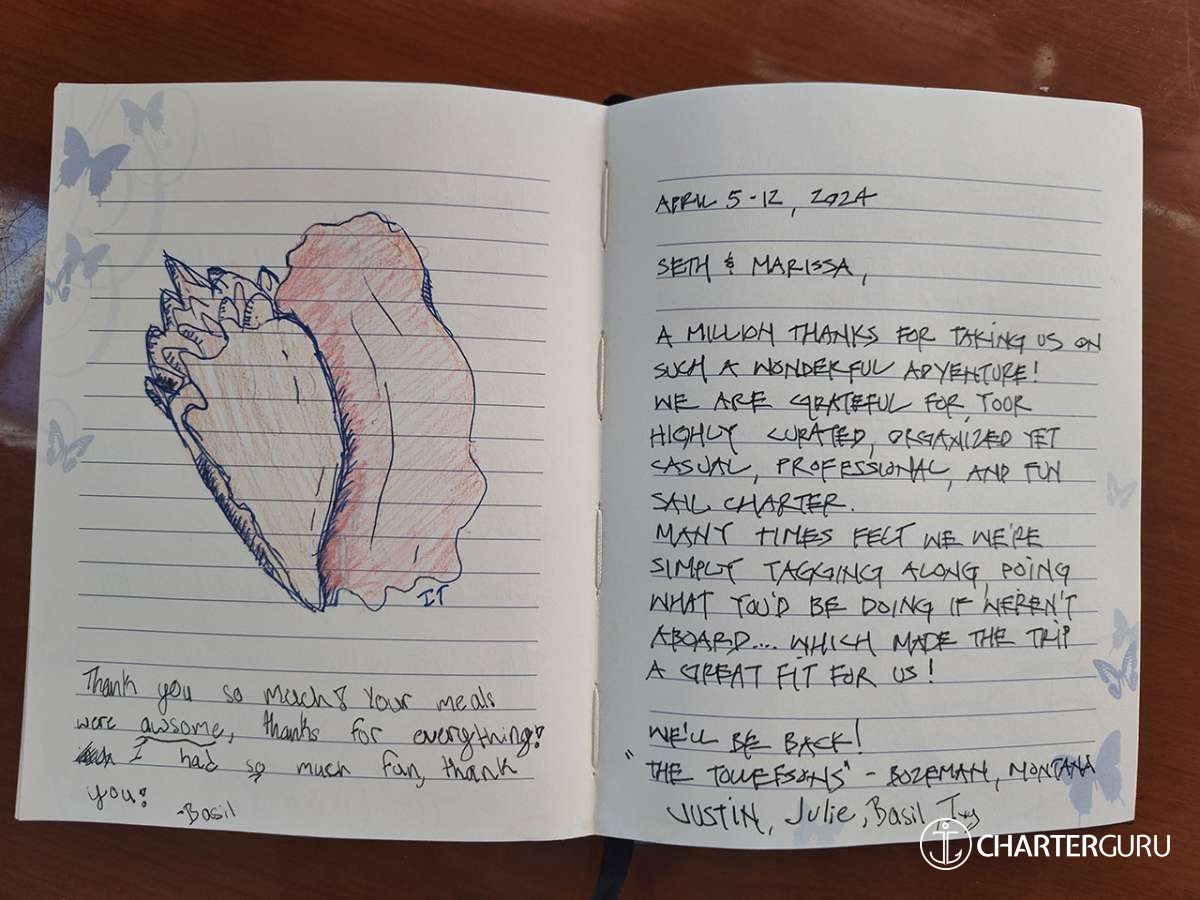 IT
Thank you so much! Your meals
were awsome, thanks for everything!
I had so much fun, thank
you!
-Basil
APRIL 5-12, 2024
SETH & MARISSA,
A MILLION THANKS FOR TAKING US ON
SUCH A WONDERFUL ADVENTURE!
WE ARE GRATEFUL FOR YOUR
HIGHLY CURATED, ORGANIZED YET
CASUAL, PROFESSIONAL, AND FUN
SAIL CHARTER.
MANY TIMES FELT WE WE'RE
SIMPLY TAGGING ALONG, DOING
WHAT YOU'D BE DOING IF WEREN'T
ABOARD.... WHICH MADE THE TRIP
A GREAT FIT FOR US!
WE'LL BE BACK!
"THE TOLLEFSONS" - BOZEMAN, MONTANA
JUSTIN, Julie, Basil Ivy
CHARTERGURU